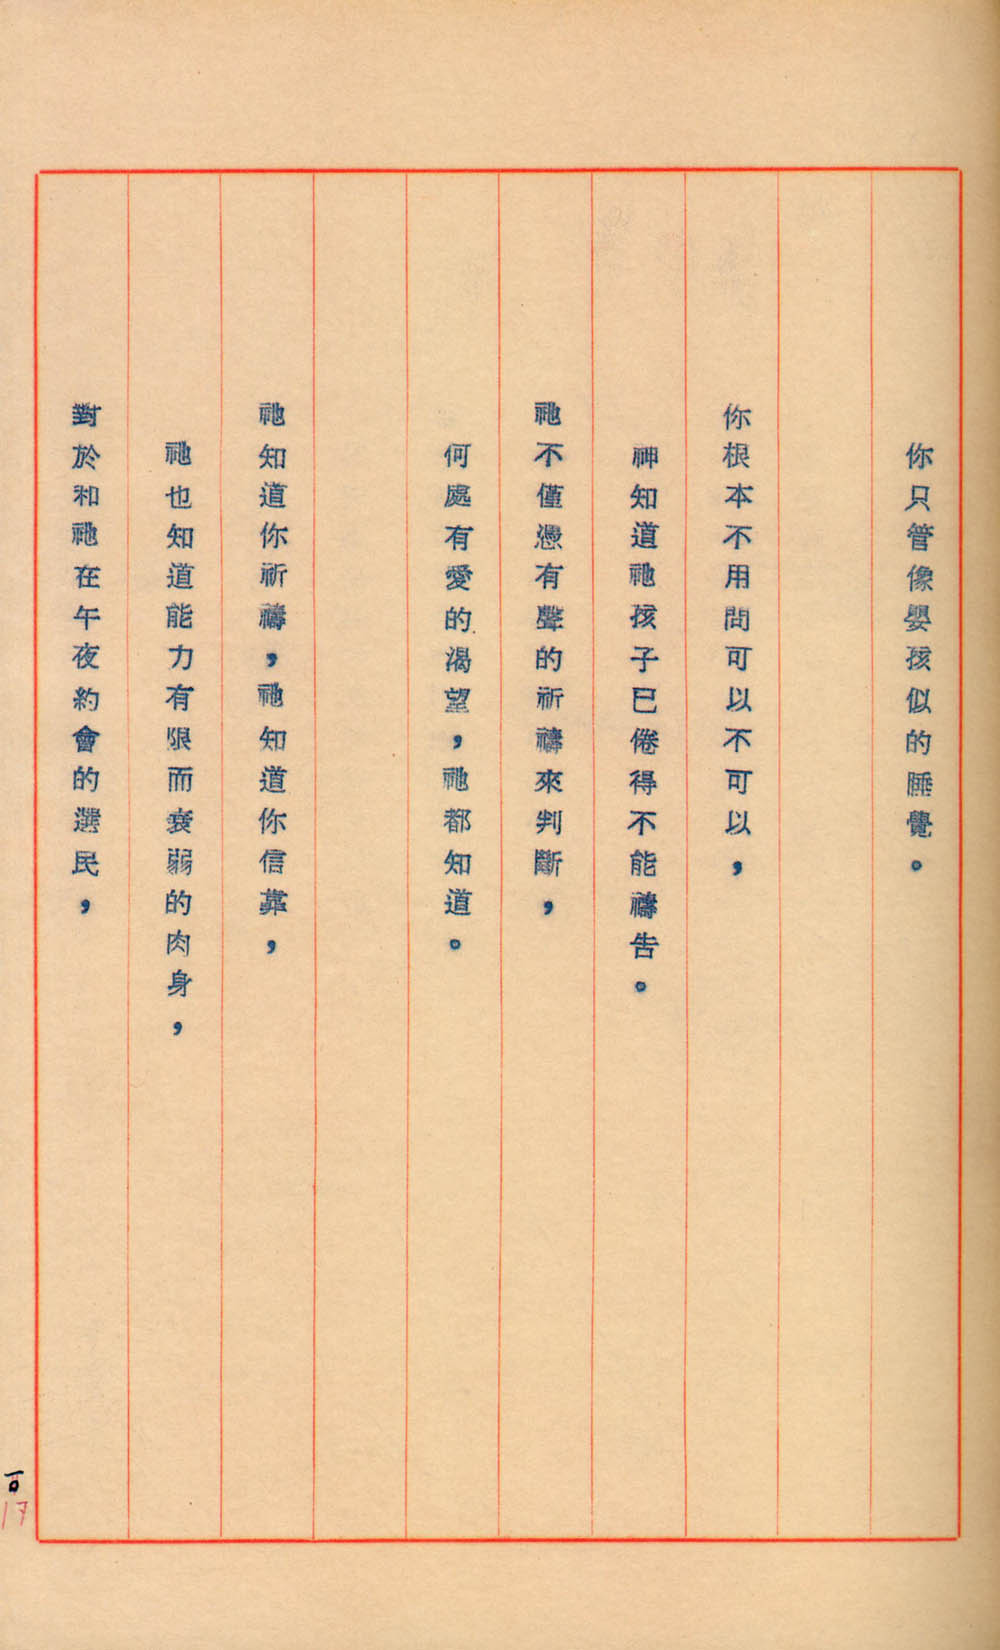 你只管像嬰孩似的睡覺。
你根本不用問可以不可以，
神知道祂孩子已倦得不能禱告。
祂不僅憑有聲的祈禱來判斷，
何處有愛的渴望，祂都知道。
祂知道你祈禱，祂知道你信靠，
祂也知道能力有限而衰弱的肉身，
對於和祂在午夜約會的選民，
17